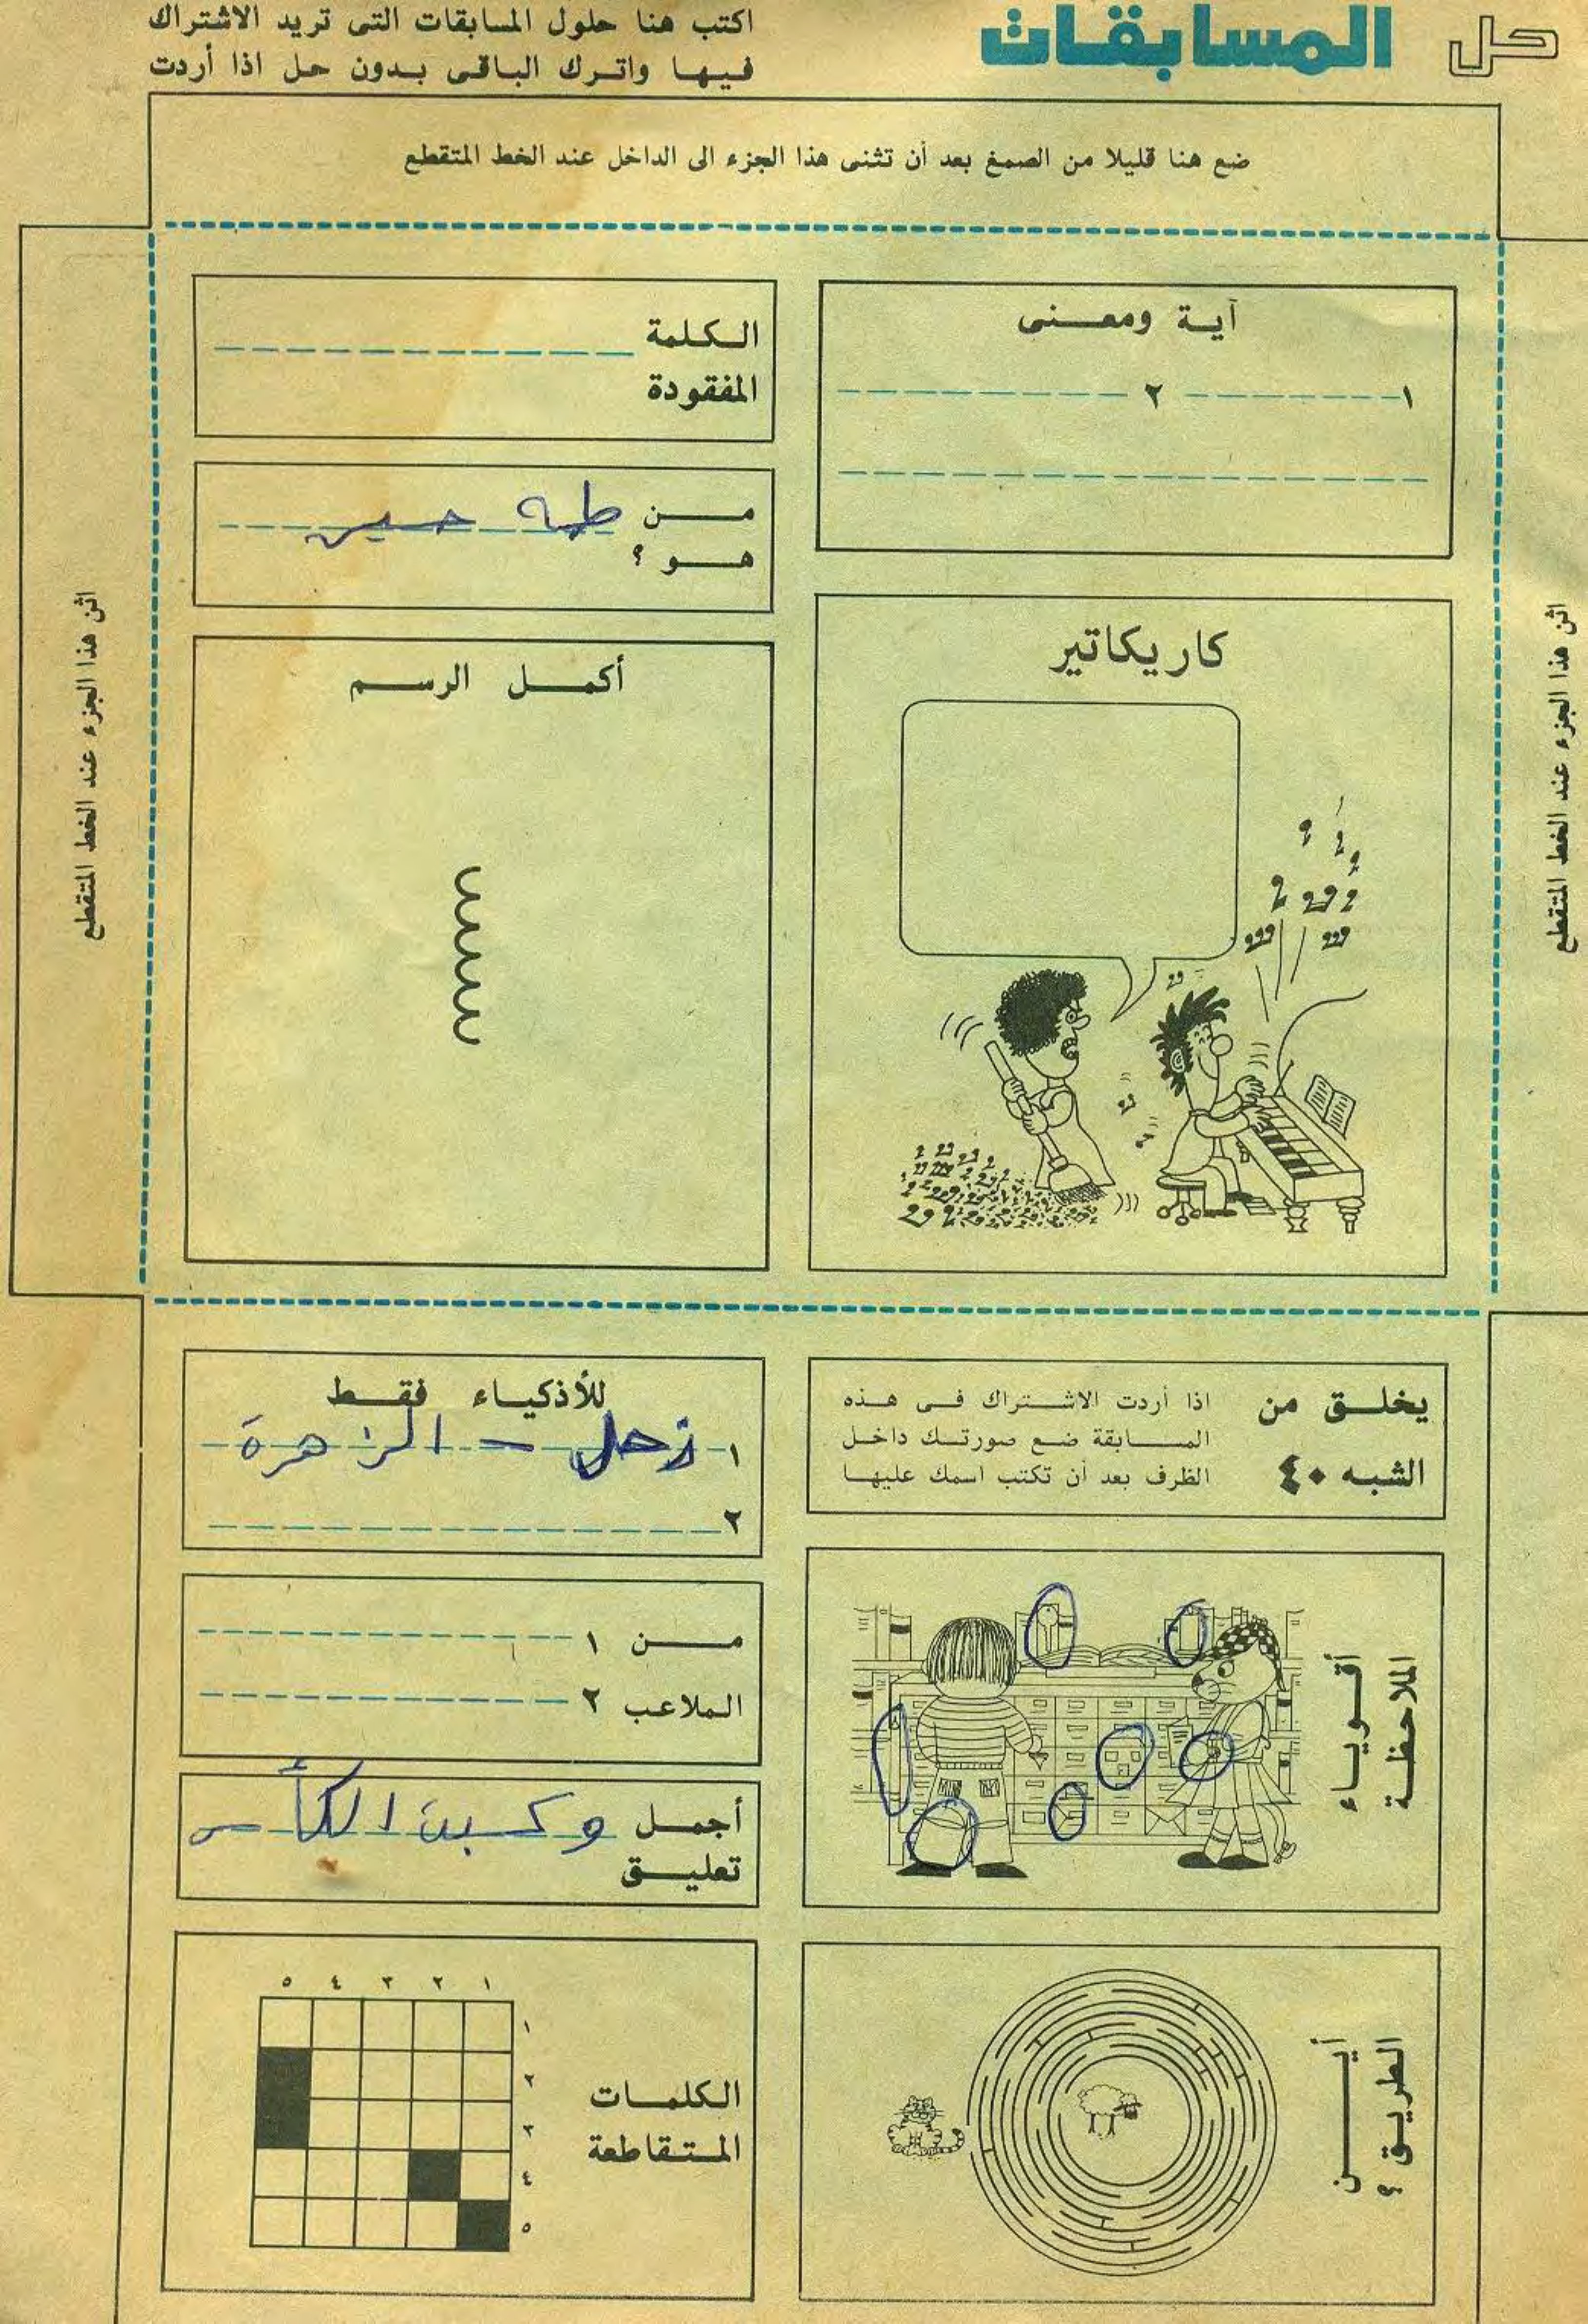 حل المسابقات
اكتب هنا حلول المسابقات التى تريد الاشتراك
فيها واترك الباقى بدون حل اذا أردت
ضع هنا قليلا من الصمغ بعد أن تثنى هذا الجزء الى الداخل عند الخط المتقطع
اثن هذا الجزء عند الخط المتقطع
آية ومعنى
١ ٢
الكلمة
المفقودة
من طه حسين
هو ؟
كاريكاتير
أكمل الرسم
اثن هذا الجزء عند الخط المتقطع
يخلق من
الشبه ٤٠
اذا أردت الاشتراك فى هذه
المسابقة ضع صورتك داخل
الظرف بعد أن تكتب اسمك عليها
للأذكياء فقط
١ زحل - الزهرة
٢
أقوياء
الملاحظة
من ١
الملاعب ٢
أجمل وكسبت الكأس
تعليق
أين
الطريق ؟
الكلمات
المتقاطعة
١ ٢ ٣ ٤ ٥
١
٢
٣
٤
٥